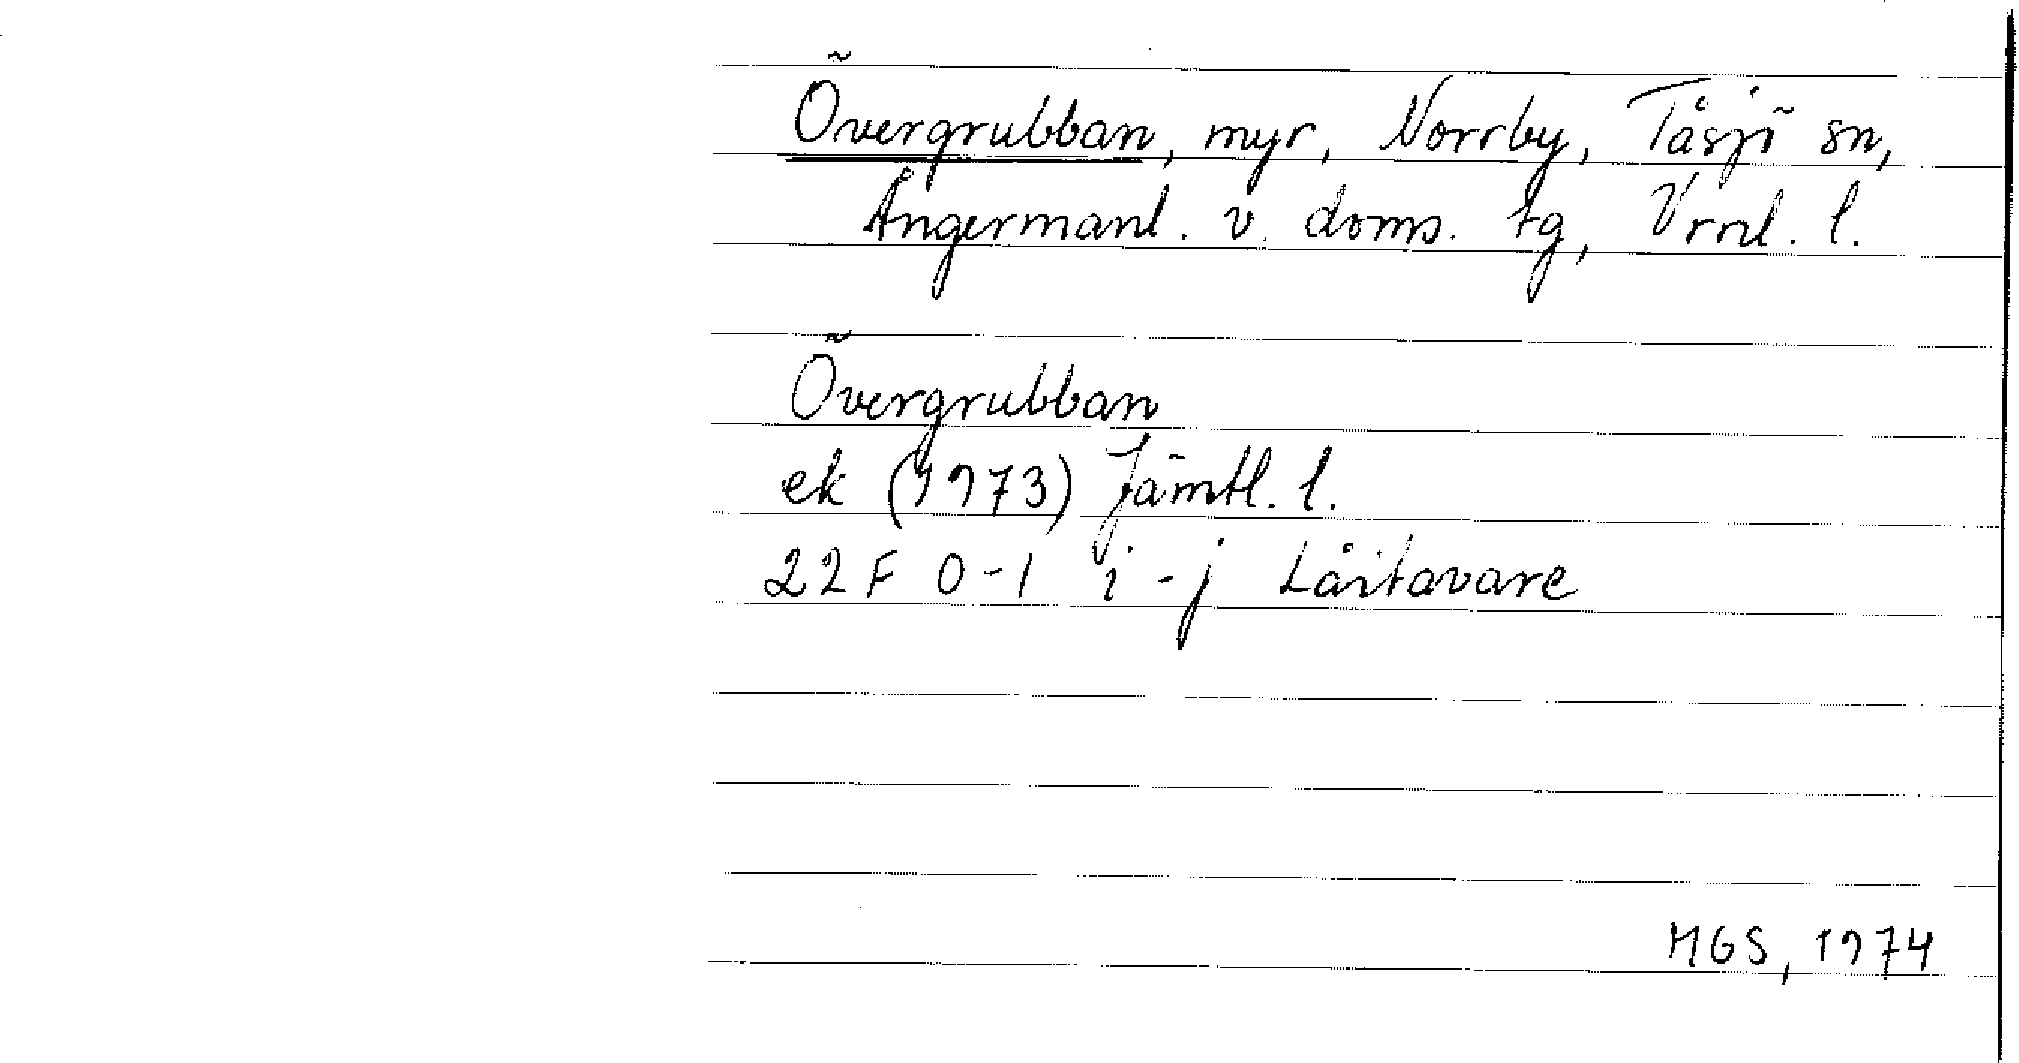 Övergrubban, myr, Norrby, Tåsjö sn,
Ångermanl. v. doms. tg, Vrnl. l.
Övergrubban
ek (1973) Jämtl. l.
22 F 0-1 i-j Låitavare
MGS, 1974